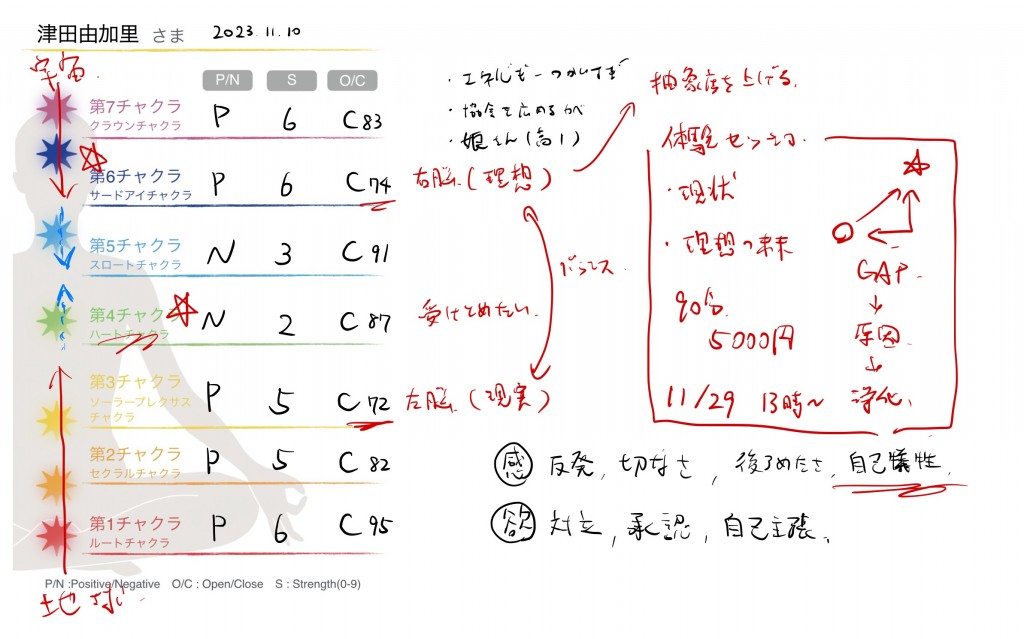 津田由加里 さま 2023.11.10
宇宙
P/N S O/C
第7チャクラ
クラウンチャクラ
P 6 C83
第6チャクラ
サードアイチャクラ
P 6 C74
第5チャクラ
スロートチャクラ
N 3 C91
第4チャクラ
ハートチャクラ
N 2 C87
第3チャクラ
ソーラープレクサス
チャクラ
P 5 C72
第2チャクラ
セクラルチャクラ
P 5 C82
第1チャクラ
ルートチャクラ
P 6 C95
P/N :Positive/Negative O/C : Open/Close S : Strength(0-9)
地球
・エネルギーつかいすぎ
・協会を広めるが
・娘さん(高1)
右脳(理想)
バランス
受けとめたい
左脳(現実)
抽象度を上げる
体験セッション
・現状
・理想の未来
90分
5000円
11/29 13時〜
GAP
原因
浄化
感 反発, 切なさ, 後ろめたさ, 自己犠牲
欲 対立, 承認, 自己主張